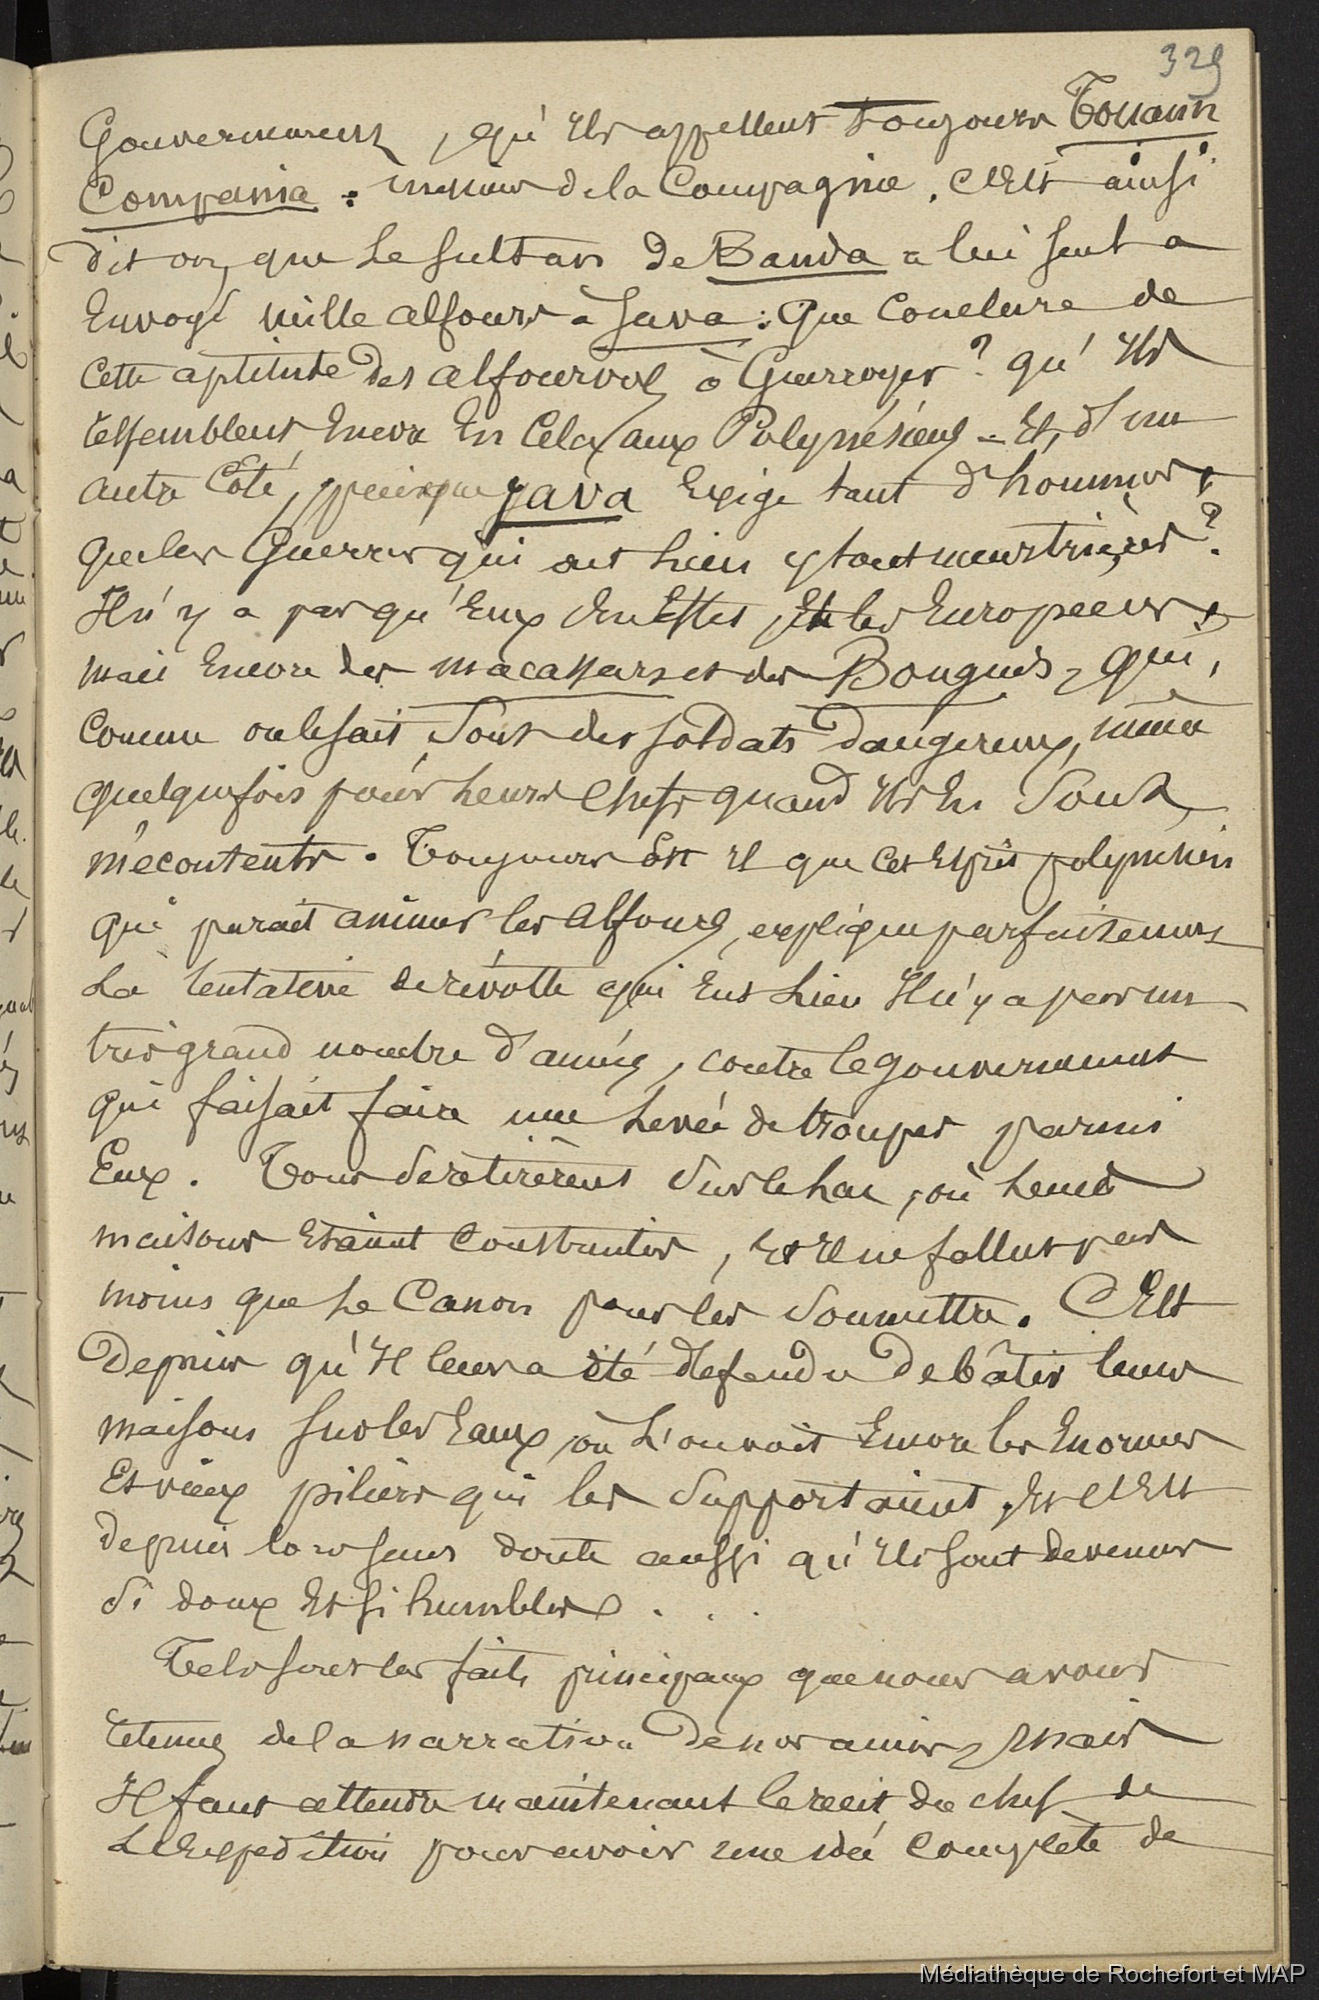 329
Gouvernement, qu'ils appellent toujours Touann
Compania : monsieur de la Compagnie. C'Est ainsi
dit on, que Le Sultan de Banda a lui seul a
Envoyé mille alfours à Java : Que Conclure de
cette aptitude des alfourous à Guerroyer ? qu'Ils
ressemblent Encore En Cela, aux Polynésiens - Et, d'un
autre Côté, puisque Java Exige tant d'hommes,
que les Guerres qui ont lieu y sont meurtrières ?
Il n'y a pas qu'Eux d'enEffet, Et les Européens,
mais Encore des macassars et des Bouguis, qui,
comme on le sait sont des soldats dangereux, même
quelquefois pour leurs chefs quand Ils En sont
mécontents. Toujours Est Il que cet Esprit polynésien
qui parait animer les alfours, explique parfaitement
La tentative de révolte qui Eut Lieu Il n'y a pas un
très grand nombre d'années, contre le gouvernement
qui faisait faire une Levée de troupes parmi
Eux. Tous se retirèrent sur le Lac, où leurs
maisons Etaient Construites, Et Il ne fallut pas
moins que Le Canon pour les soumettre. C'Est
Depuis qu'Il leur a été défendu De bâtir leurs
maisons sur les Eaux, où L'on voit Encore les Enormes
Et vieux piliers qui les supportaient, Et c'Est
depuis lors sans doute aussi qu'Ils sont devenus
si doux Et si humbles . . .
Tels sont les faits principaux que nous avons
retenus de la narration De nos amis, mais
Il faut attendre maintenant le récit du chef de
L'Expédition pour avoir une idée complète de
Médiathèque de Rochefort et MAP